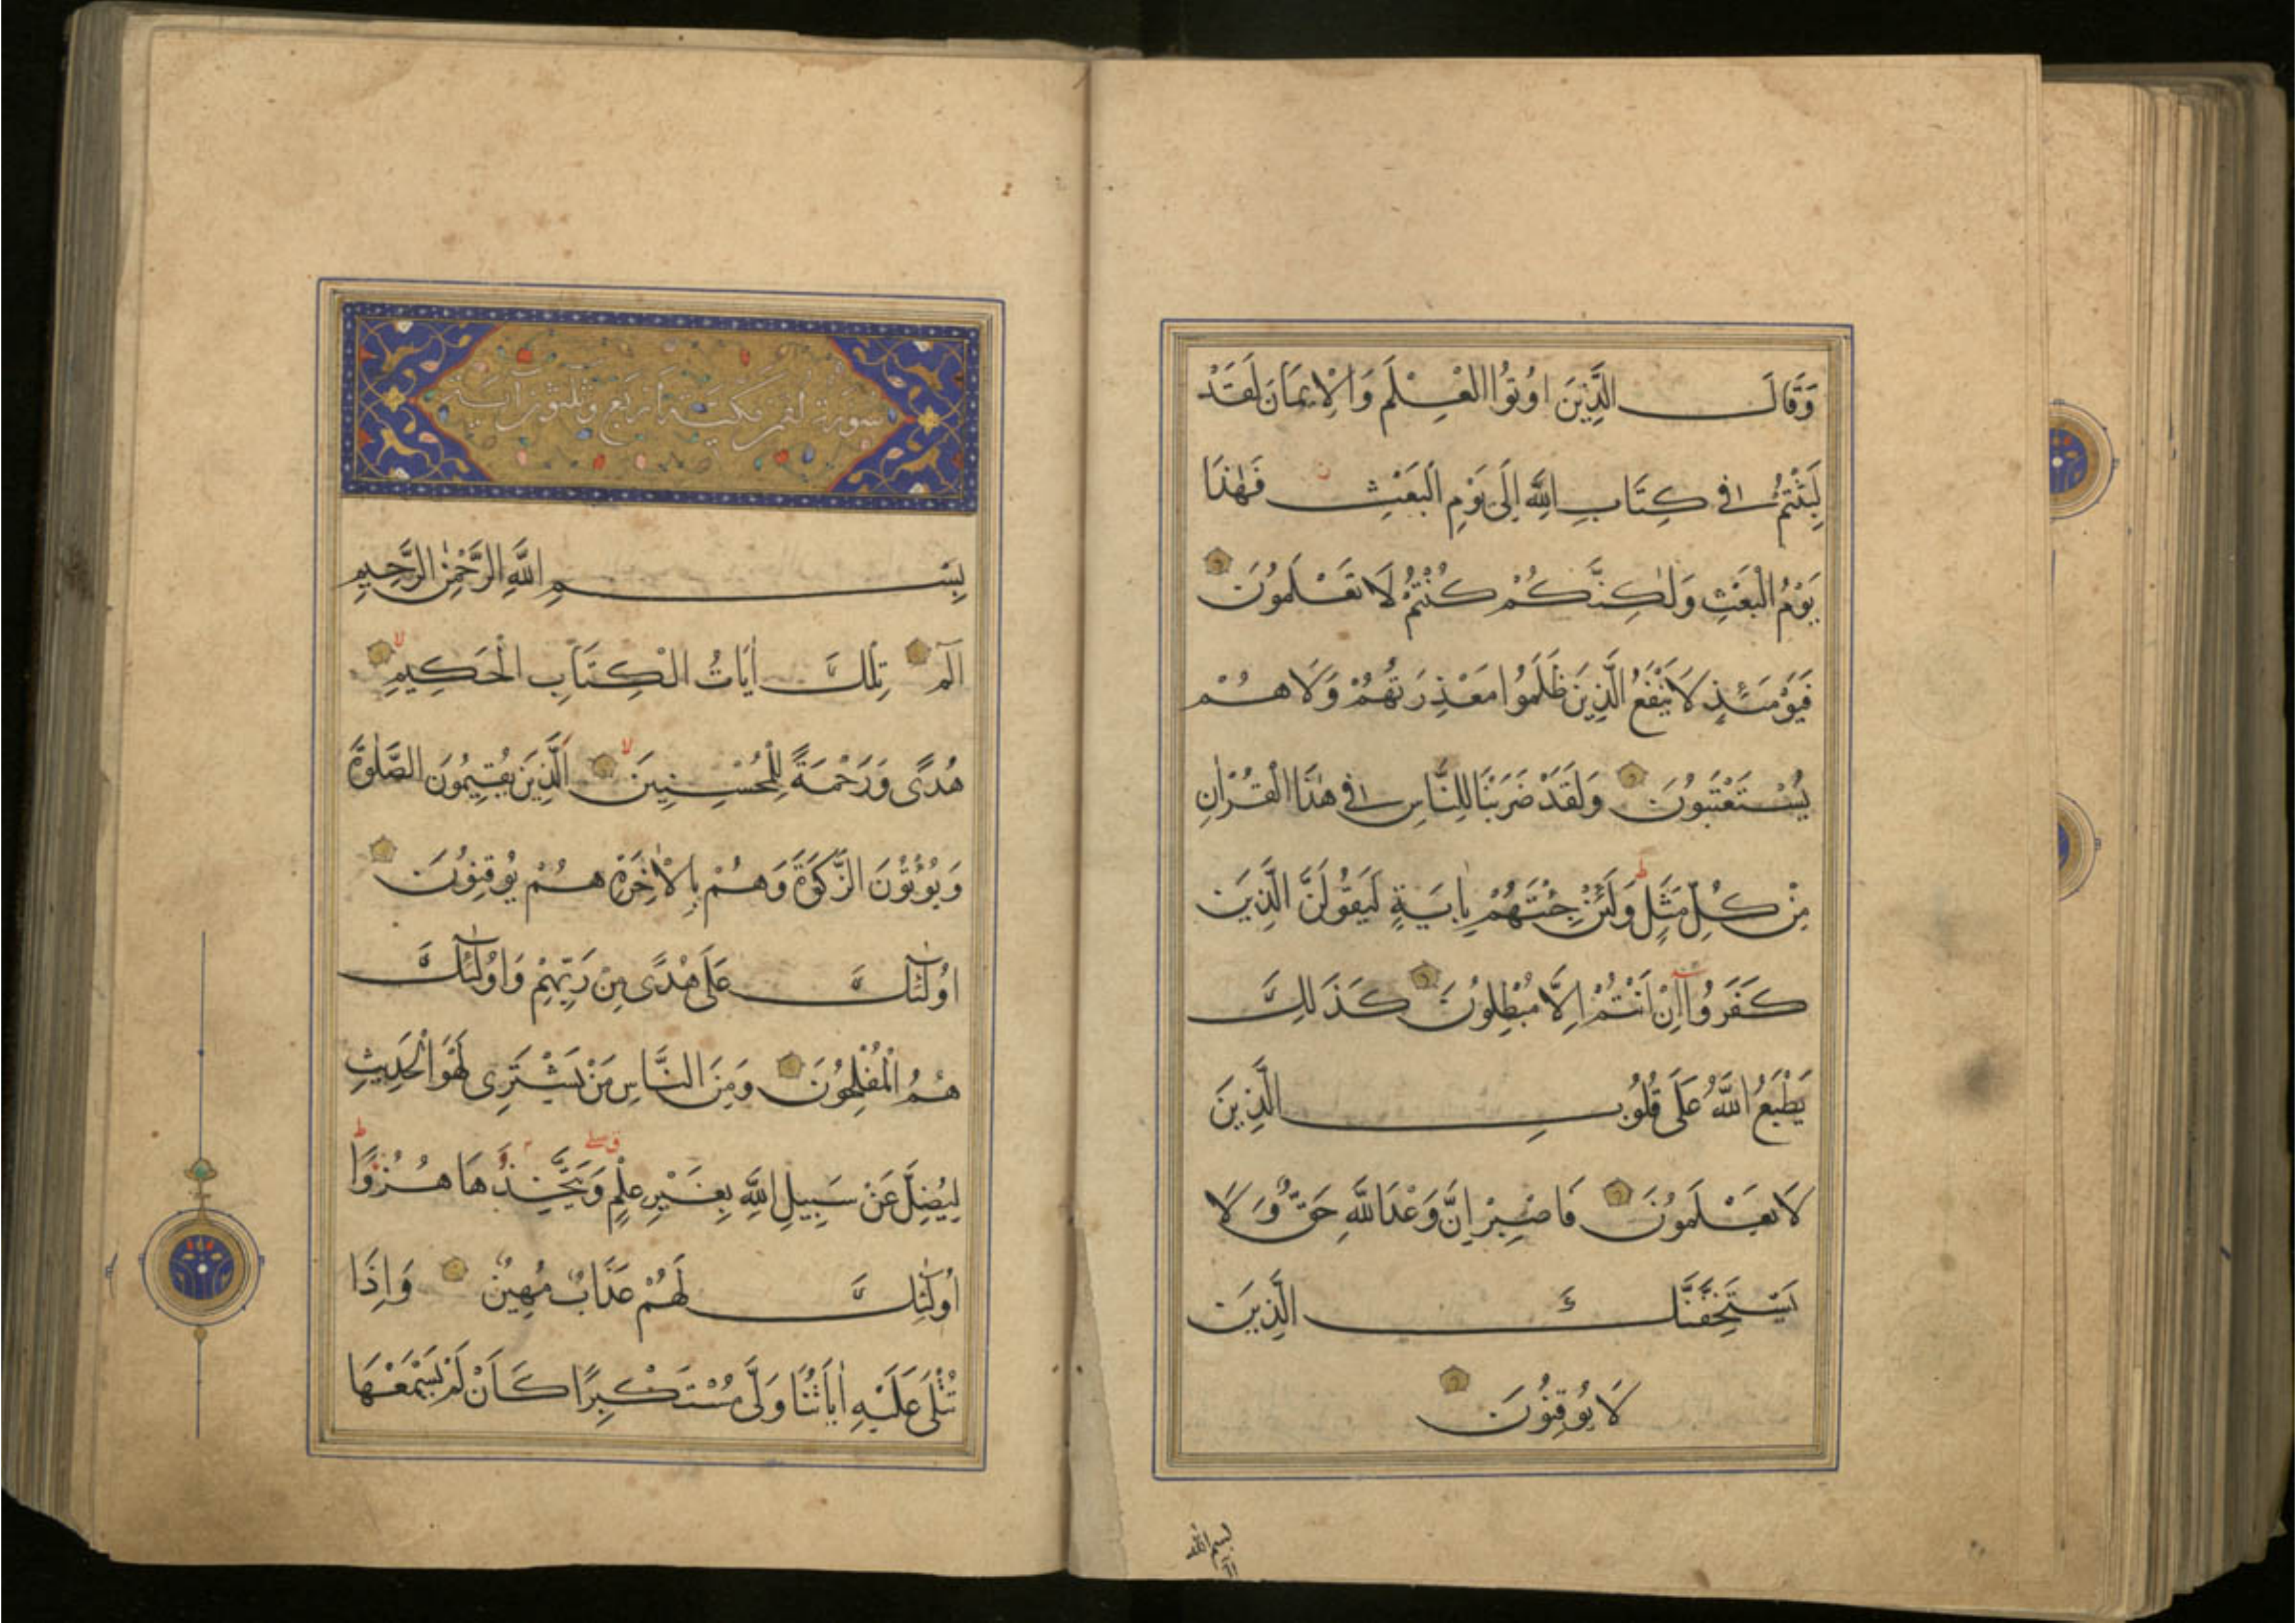 وَقَالَ الَّذِينَ اُوتُوا الْعِلْمَ وَالْاِيمَانَ لَقَدْ
لَبِثْتُمْ فِي كِتَابِ اللّٰهِ اِلَى يَوْمِ الْبَعْثِ فَهٰذَا
يَوْمُ الْبَعْثِ وَلٰكِنَّكُمْ كُنْتُمْ لَا تَعْلَمُونَ
فَيَوْمَئِذٍ لَا يَنْفَعُ الَّذِينَ ظَلَمُوا مَعْذِرَتُهُمْ وَلَا هُمْ
يُسْتَعْتَبُونَ وَلَقَدْ ضَرَبْنَا لِلنَّاسِ فِي هٰذَا الْقُرْاٰنِ
مِنْ كُلِّ مَثَلٍ ط وَلَئِنْ جِئْتَهُمْ بِاٰيَةٍ لَيَقُولَنَّ الَّذِينَ
كَفَرُوا اِنْ اَنْتُمْ اِلَّا مُبْطِلُونَ كَذَلِكَ
يَطْبَعُ اللّٰهُ عَلَى قُلُوبِ الَّذِينَ
لَا يَعْلَمُونَ فَاصْبِرْ اِنَّ وَعْدَ اللّٰهِ حَقٌّ وَلَا
يَسْتَخِفَّنَّكَ الَّذِينَ
لَا يُوقِنُونَ
بسم الله
سورة لقمن مكية اربع وثلثون آية
بِسْمِ اللّٰهِ الرَّحْمٰنِ الرَّحِيمِ
الٓمٓ تِلْكَ اٰيَاتُ الْكِتَابِ الْحَكِيمِ لا
هُدًى وَرَحْمَةً لِلْمُحْسِنِينَ لا اَلَّذِينَ يُقِيمُونَ الصَّلٰوةَ
وَيُؤْتُونَ الزَّكٰوةَ وَهُمْ بِالْاٰخِرَةِ هُمْ يُوقِنُونَ
اُولٰٓئِكَ عَلَى هُدًى مِنْ رَبِّهِمْ وَاُولٰٓئِكَ
هُمُ الْمُفْلِحُونَ وَمِنَ النَّاسِ مَنْ يَشْتَرِي لَهْوَ الْحَدِيثِ
لِيُضِلَّ عَنْ سَبِيلِ اللّٰهِ بِغَيْرِ عِلْمٍ وَيَتَّخِذَهَا هُزُوًا ط
اُولٰٓئِكَ لَهُمْ عَذَابٌ مُهِينٌ وَاِذَا
تُتْلَى عَلَيْهِ اٰيَاتُنَا وَلَّى مُسْتَكْبِرًا كَاَنْ لَمْ يَسْمَعْهَا